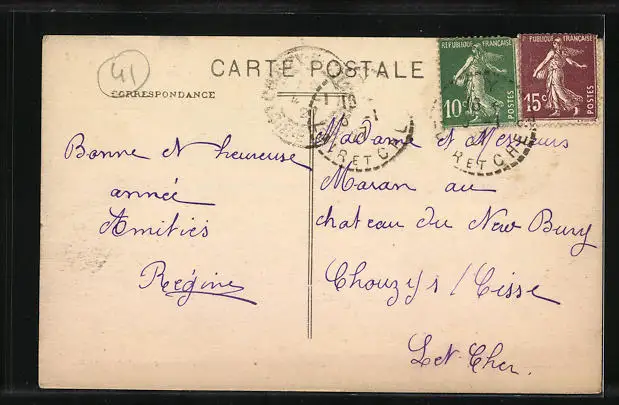 41
CARTE POSTALE
CORRESPONDANCE
REPUBLIQUE FRANÇAISE
10c
POSTES
REPUBLIQUE FRANÇAISE
15c
POSTES
LOIR ET CHER
Bonne et heureuse
année
Amitiés
Régine
Madame et Messieurs
Maran au
chateau du New Bury
Chouzy s/ Cisse
L et Cher.